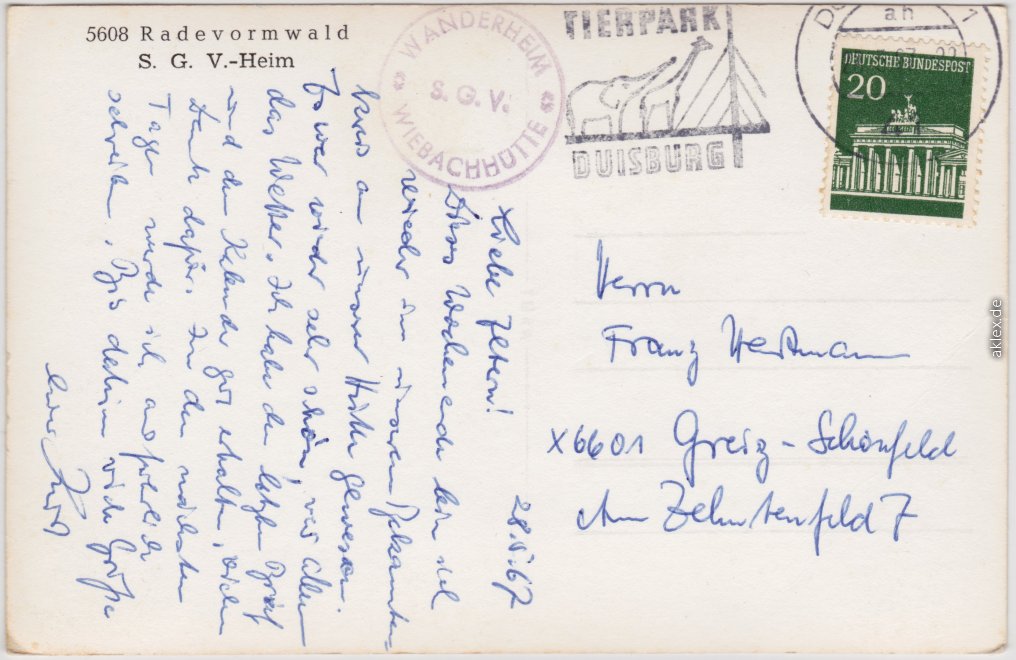 5608 Radevormwald
S. G. V.-Heim
WANDERHEIM
S. G. V.
WIEBACHHÜTTE
TIERPARK
DUISBURG
DEUTSCHE BUNDESPOST
20
28.5.67
Liebe Eltern!
Dieses Wochenende bin ich
wieder im unserem Bekannten-
kreis an unserer Hütte gewesen.
Es war wieder sehr schön, vor allem
das Wetter. Ich habe den letzten Brief
und den Kalender gut erhalten, vielen
Dank dafür. In den nächsten
Tagen werde ich ausführlich
schreiben. Bis dahin viele Grüße
Euer
Herrn
Franz
X6601 Greiz-Schönfeld
Am Zehntenfeld 7
aklex.de